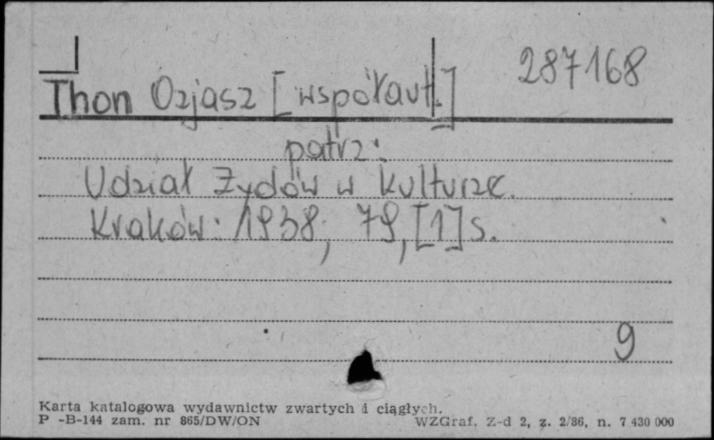 287168
Thon Ozjasz [współaut.]
patrz:
Udział Żydów w kulturze.
Kraków: 1938, 79, [1] s.
9
Karta katalogowa wydawnictw zwartych i ciągłych.
P -B-144 zam. nr 865/DW/ON WZGraf. Z-d 2, z. 2/86, n. 7 430 000